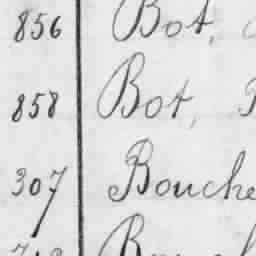 856 Bot,
858 Bot,
307 Bouche